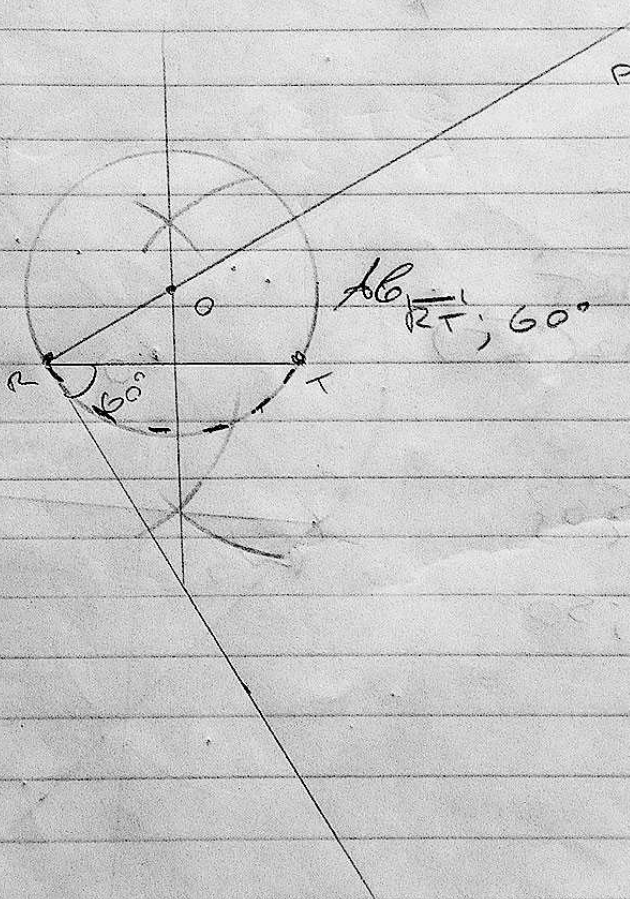 P
O
AC RT ; 60°
R
60°
T